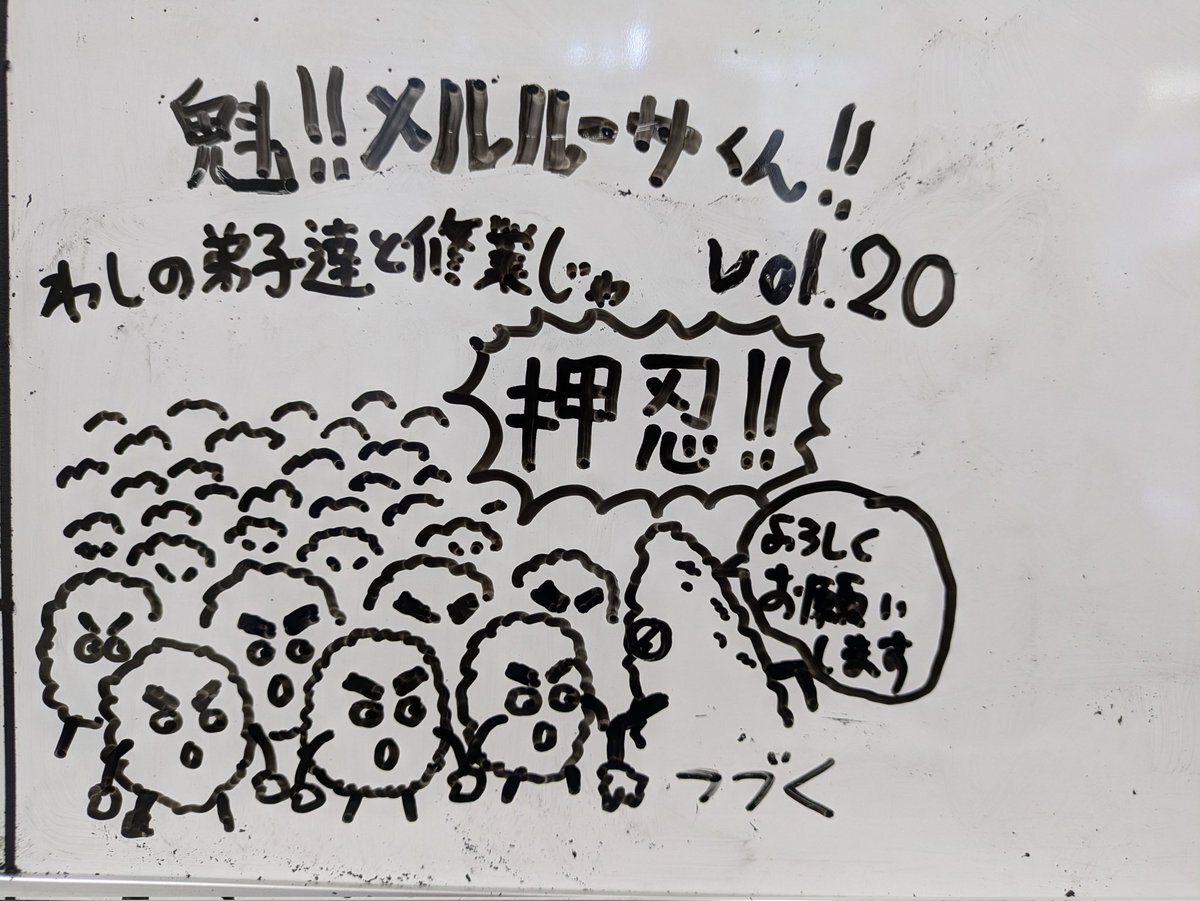 魁!!メルルーサくん!!
わしの弟子達と修業じゃ vol.20
押忍!!
よろしく
お願い
します
つづく